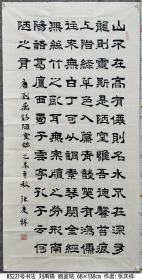 山不在高有僊則名水不在深有
龍則靈斯是陋室惟吾德馨苔痕
上階綠草色入簾青談笑有鴻儒
往來無白丁可以調素琴閱金經
無絲竹之亂耳無案牘之勞形南
陽諸葛廬西蜀子雲亭孔子云何
陋之有
唐劉禹錫陋室銘 乙未年秋 張慶祥
R5221号书法 刘禹锡 陋室铭 68×138cm 作者: 张庆祥